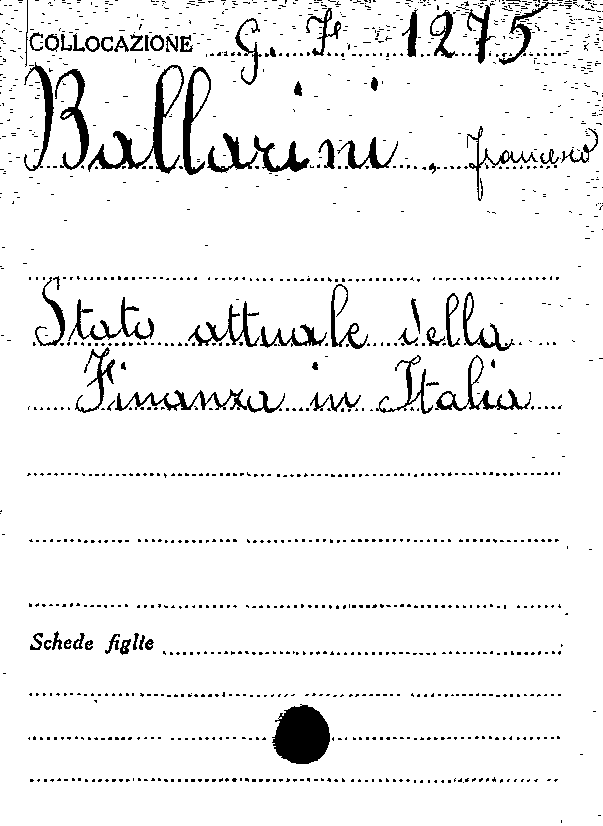 COLLOCAZIONE G. F. 1275
Ballarini, Francesco
Stato attuale della
Finanza in Italia
Schede figlie